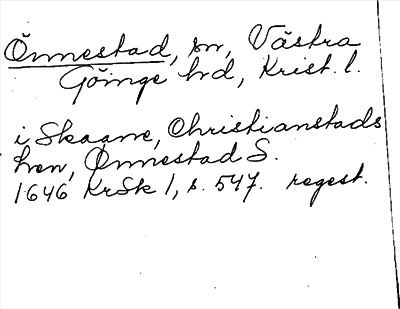 Önnestad, sn, Västra
Göinge hd, Krist. l.
i Skaane, Christianstads
Len, Ønnestad S.
1646 KrSk 1, s. 547. regest.